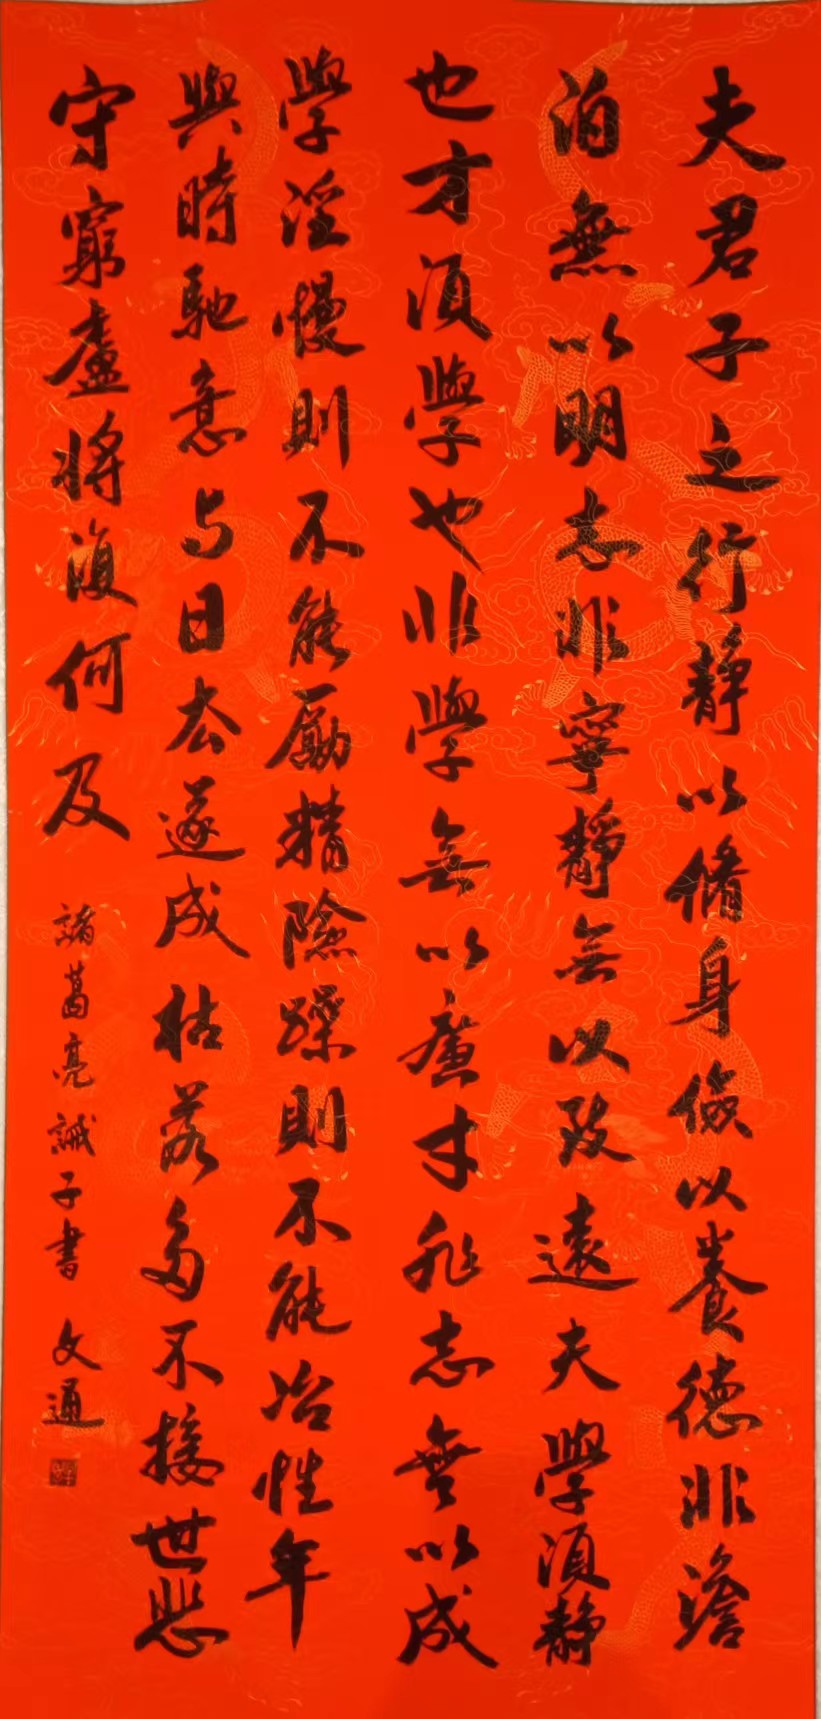 夫君子之行靜以脩身儉以養德非澹
泊無以明志非寧靜無以致遠夫學須靜
也才須學也非學無以廣才非志無以成
學淫慢則不能勵精險躁則不能冶性年
與時馳意与日去遂成枯落多不接世悲
守窮盧將復何及
諸葛亮誡子書 文通